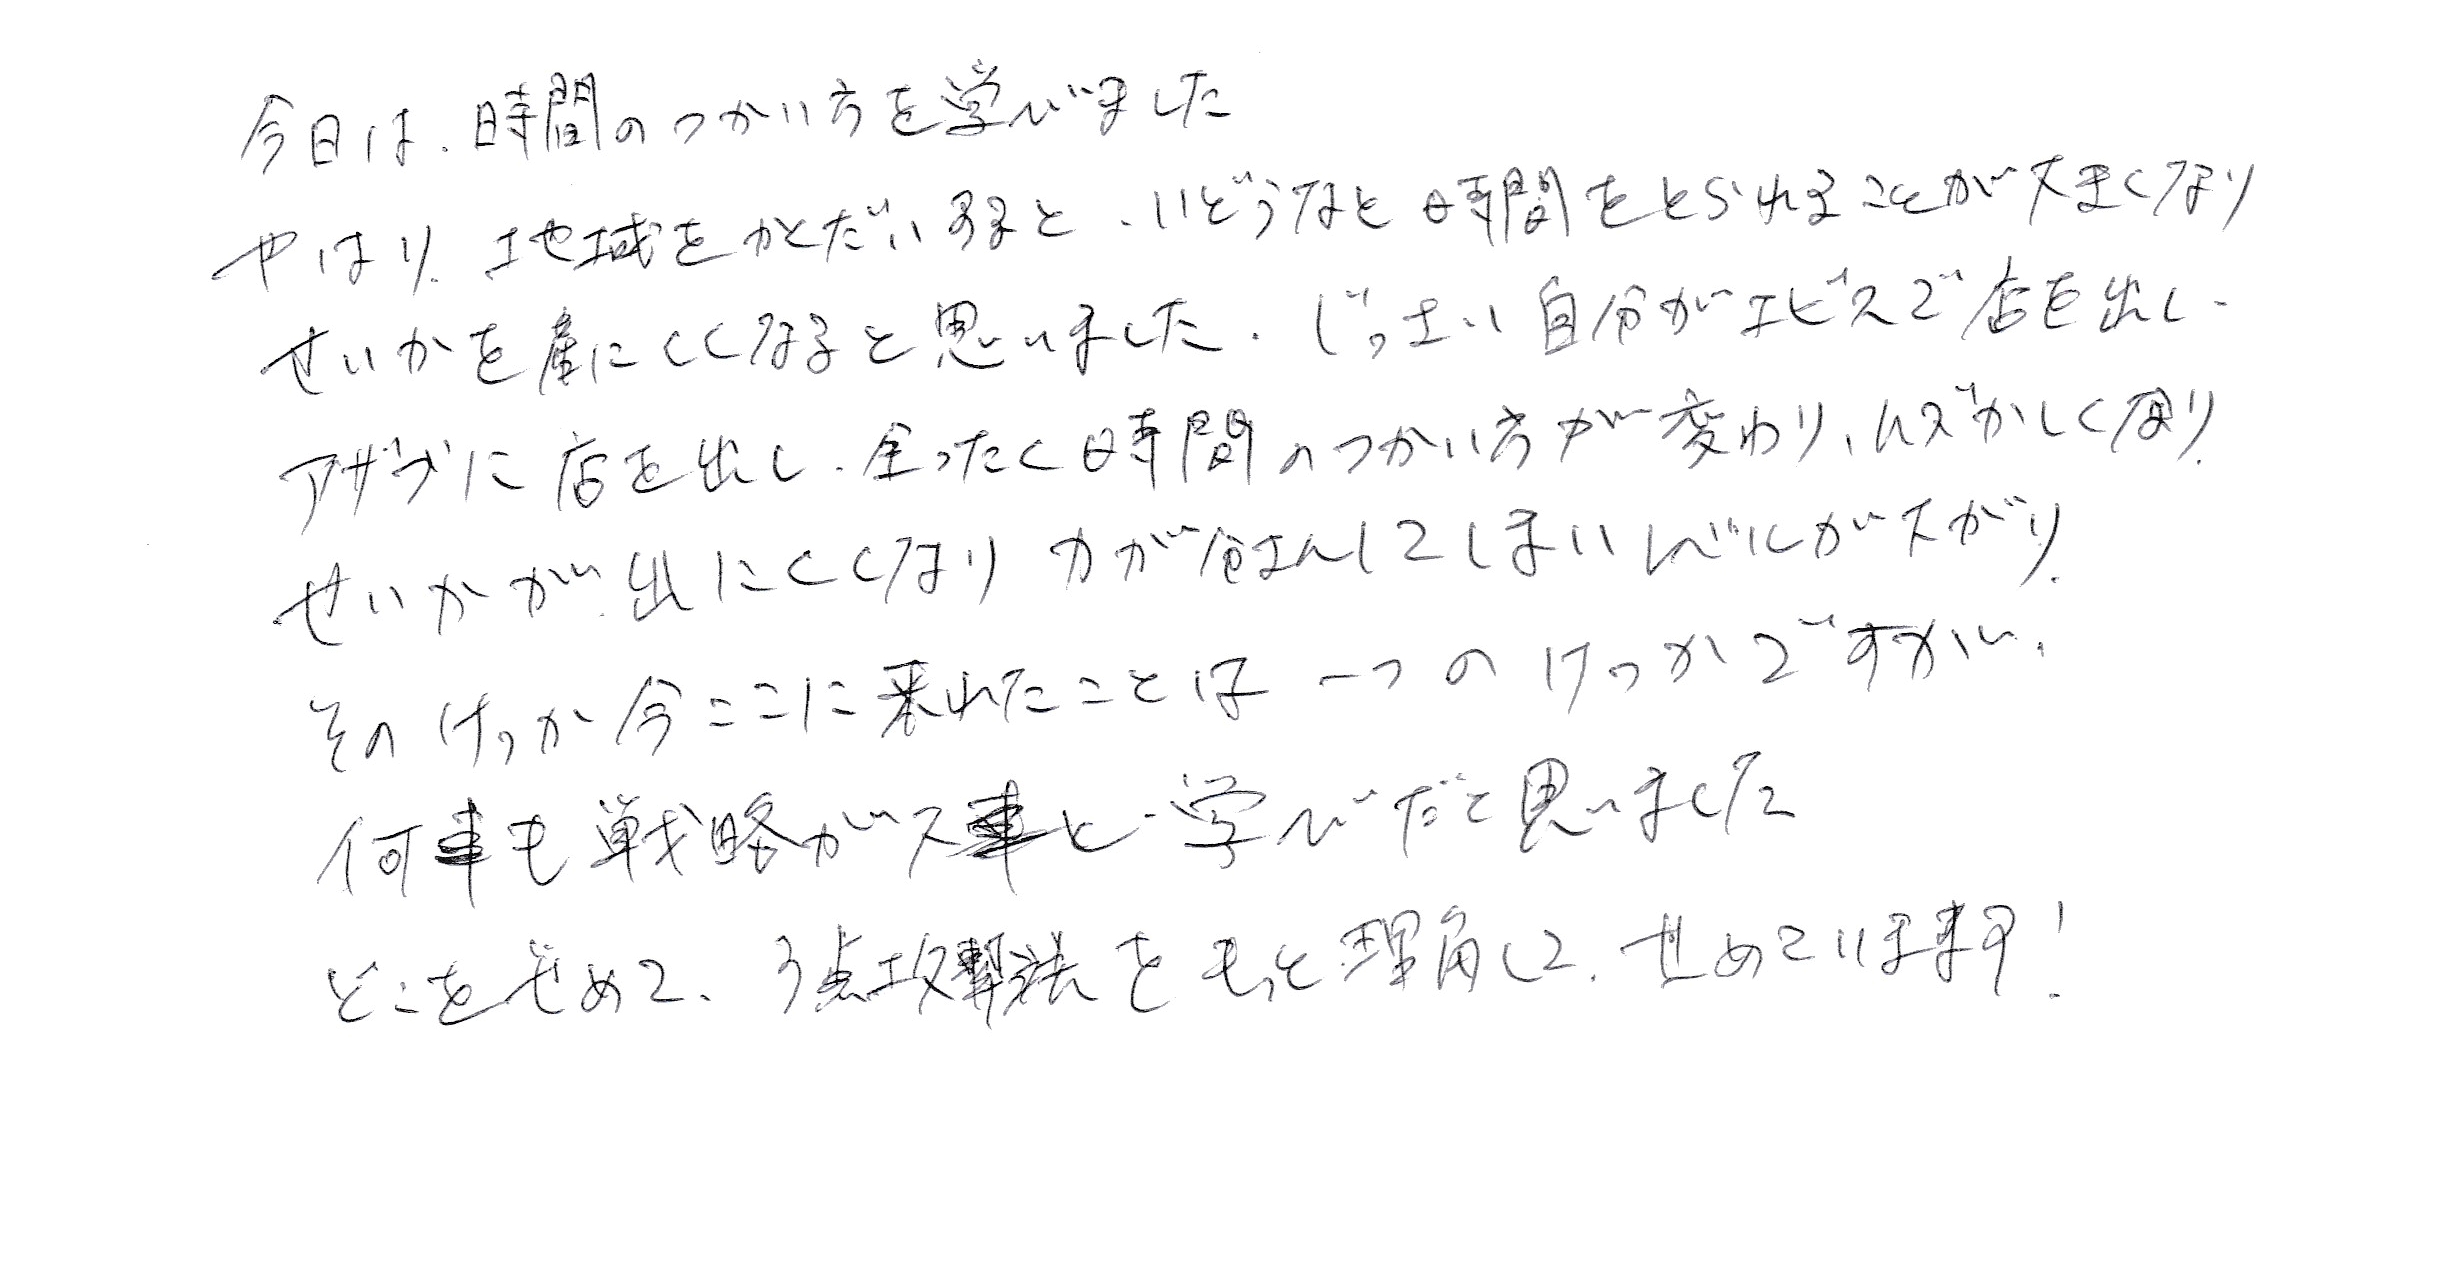 今日は、時間のつかい方を学びました
やはり、地域をかくだいすると、いどうなど時間をとられることが大きくなり
せいかを産にくくなると思いました。じっさい自分がエビスで店を出し、
アザブに店を出し、全ったく時間のつかい方が変わり、ムズかしくなり、
せいかが出にくくなり 力が分さんしてしまいレベルが下がり、
そのけっか今ここに来れたことは一つのけっかですが、
何事も戦略が大事と、学びだと思いました
どこをせめて、3点攻撃法をもっと理角して、せめていきます!